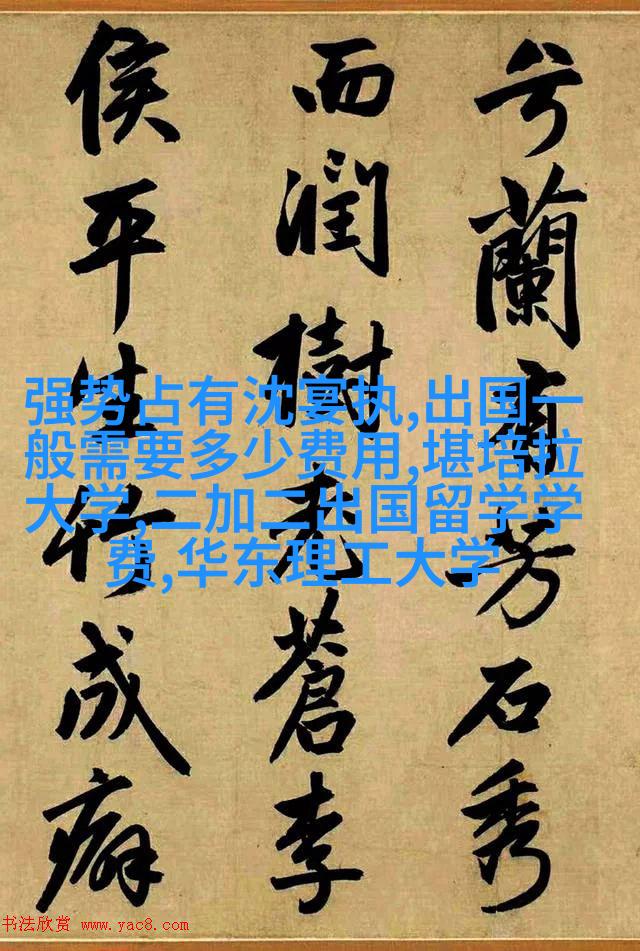 兮蘭有芳石秀
而潤樹蒼李
侯平生竹成癖
强势占有沈宴执,出国一
般需要多少费用,堪培拉
大学,二加二出国留学学
费,华东理工大学
书法欣赏 www.yac8.com